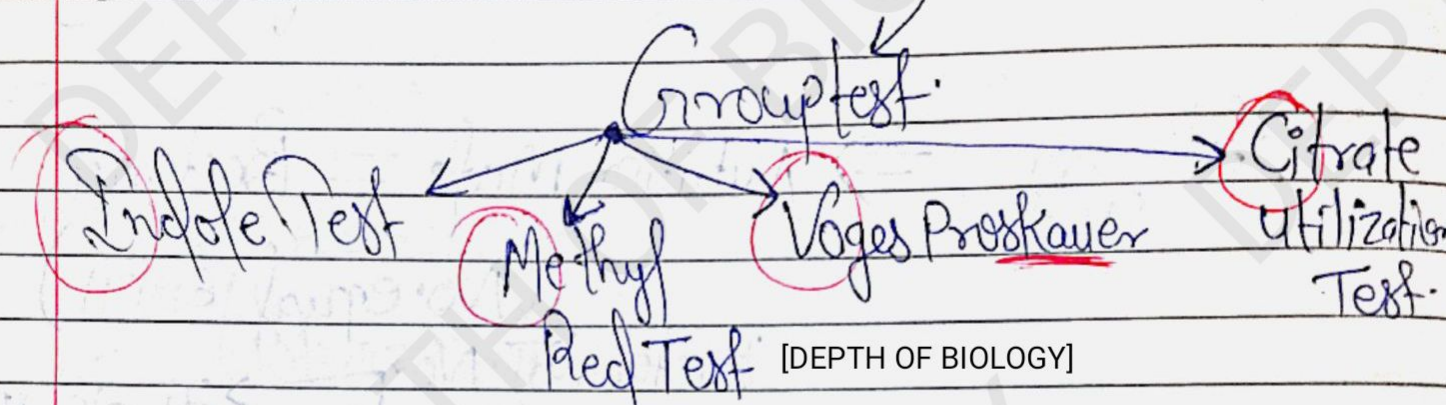 Group test.
Indole Test
Methyl
Red Test
Voges Proskauer
Citrate
Utilization
Test.
[DEPTH OF BIOLOGY]
DEPTH OF BIOLOGY
DEP